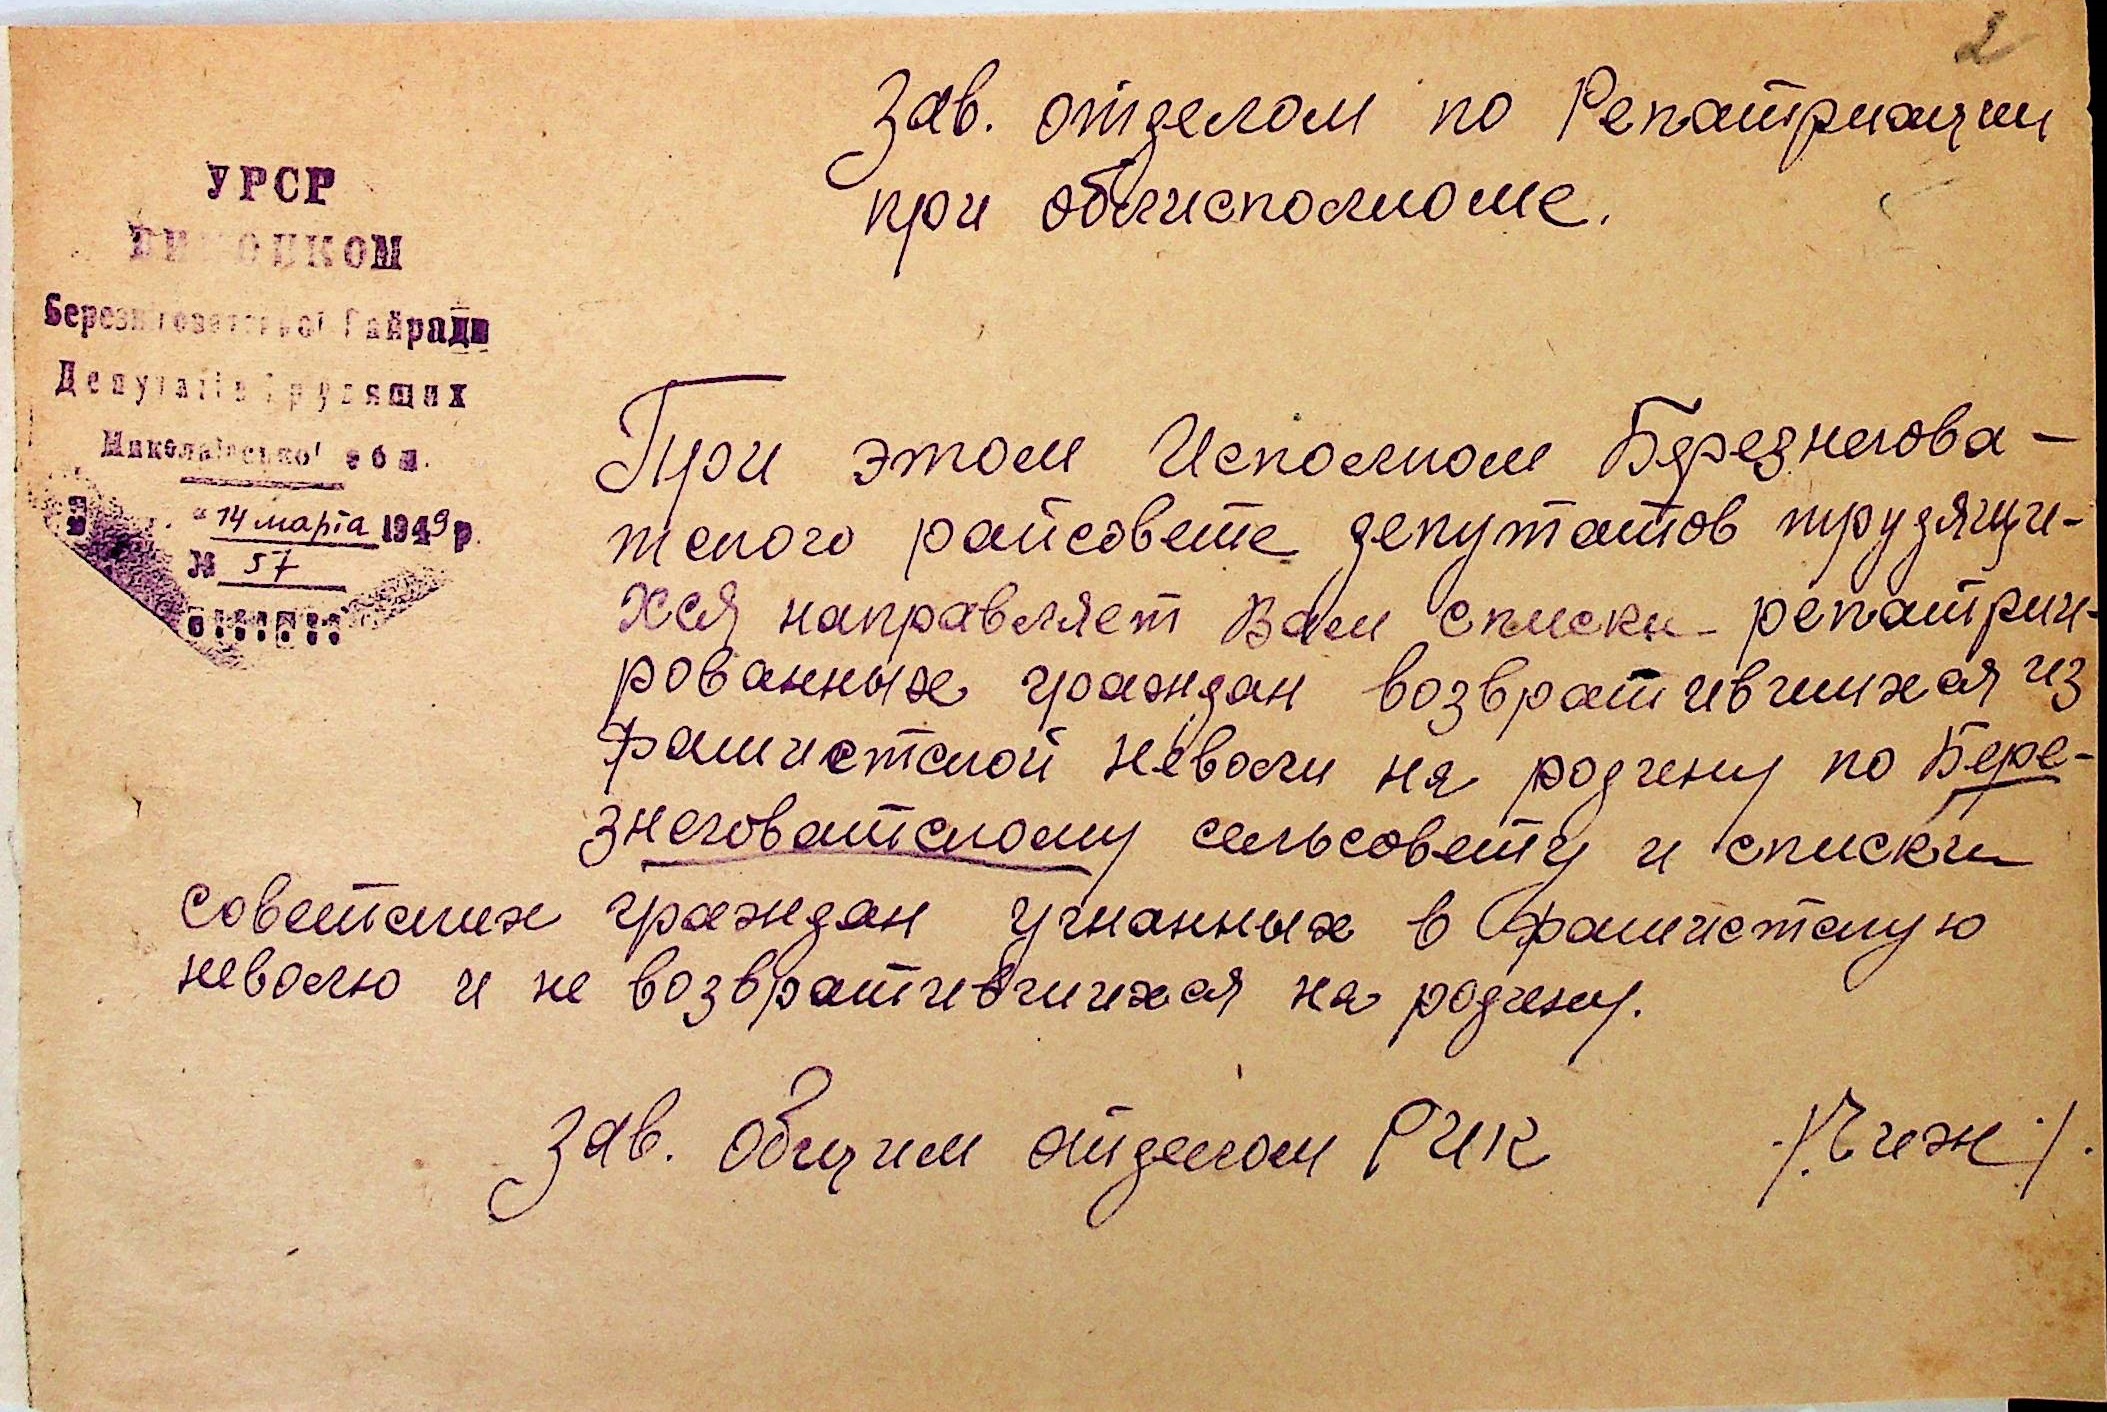 2
Зав. отделом по Репатриации
при облисполкоме.
УРСР
ВИКОНКОМ
Березнiговатської Райради
Депутатiв Трудящих
Миколаївської обл.
"14 марта 1949 р.
№ 57
При этом Исполком Березнегова-
тского райсовете депутатов трудящи-
хся направляет Вам списки репатрии-
рованных граждан возвратившихся из
фашистской неволи на родину по Бере-
знеговатскому сельсовету и списки
советских граждан угнанных в фашистскую
неволю и не возвратившихся на родину.
Зав. общим отделом РИК /Чиж/.